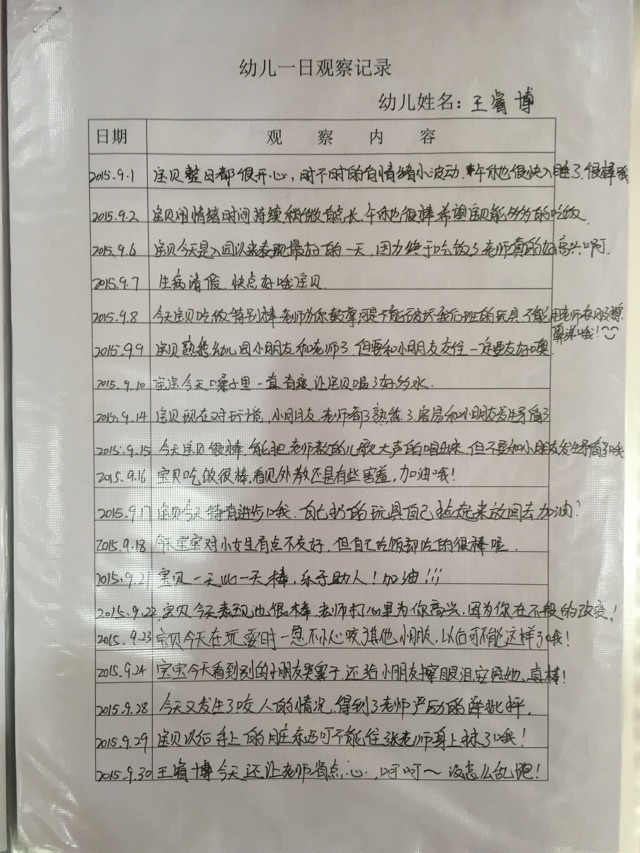 幼儿一日观察记录
幼儿姓名：王睿博
日期 观察内容
2015.9.1 宝贝整日都很开心，时不时的有情绪小波动.午休也很快入睡了.很棒哦
2015.9.2 宝贝闹情绪时间持续稍微有点长，午休也很棒希望宝贝能多多的吃饭.
2015.9.6 宝贝今天是入园以来表现最好的一天，因为终于吃饭了老师真的好高兴啊.
2015.9.7 生病请假，快点好哦宝贝.
2015.9.8 今天宝贝吃饭特别棒老师为你鼓掌但是不能破坏我们班的玩具.不能用老师衣服擦
鼻涕哦！
2015.9.9 宝贝熟悉幼儿园小朋友和老师了.但要和小朋友友住一定要友好噢.
2015.9.10 宝宝今天嗓子里一直有痰让宝贝喝了好多水.
2015.9.14 宝贝现在对环境，小朋友.老师都了熟练了.容易和小朋友发生矛盾了
2015.9.15 今天宝贝很棒，能把老师教的儿歌大声的唱出来，但不要和小朋友发生矛盾了哦
2015.9.16 宝贝吃饭很棒，看见外教还是有些害羞，加油哦！
2015.9.17 宝贝今天特有进步哦，自己扔的玩具自己捡起来放回去加油！
2015.9.18 今天宝宝对小女生有点不友好，但自己吃饭却吃的很棒呢.
2015.9.21 宝贝一天比一天棒，乐于助人！加油！！！
2015.9.22 宝贝今天表现也很棒.老师打心里为你高兴，因为你在不段的改变！
2015.9.23 宝贝今天在玩耍时一忽不小心咬了其他小朋友，以后可不能这样了哦！
2015.9.24 宝宝今天看到别的小朋友哭鼻子，还给小朋友擦眼泪.安慰她，真棒！
2015.9.28 今天又发生了咬人的情况，得到了老师严厉的批评.
2015.9.29 宝贝以后手上的脏东西可不能往张老师身上抹了哦！
2015.9.30 王睿博今天还让老师省点心，呵呵～没怎么乱跑！